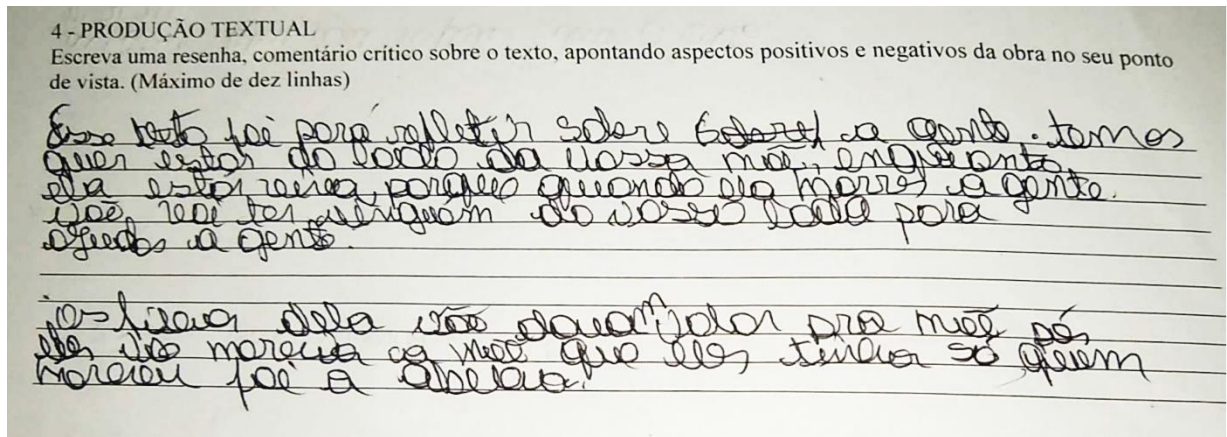 4 - PRODUÇÃO TEXTUAL
Escreva uma resenha, comentário crítico sobre o texto, apontando aspectos positivos e negativos da obra no seu ponto
de vista. (Máximo de dez linhas)
Esse texto foi para refletir sobre a gente. temos
que estar do lado da nossa mãe, enquanto
ela estar viva, porque quando ela morrer a gente
não vai ter ninguém do nosso lado para
ajudar a gente.
Os dela não davam valor pra mãe só,
eles não a mãe que eles só quem
foi a